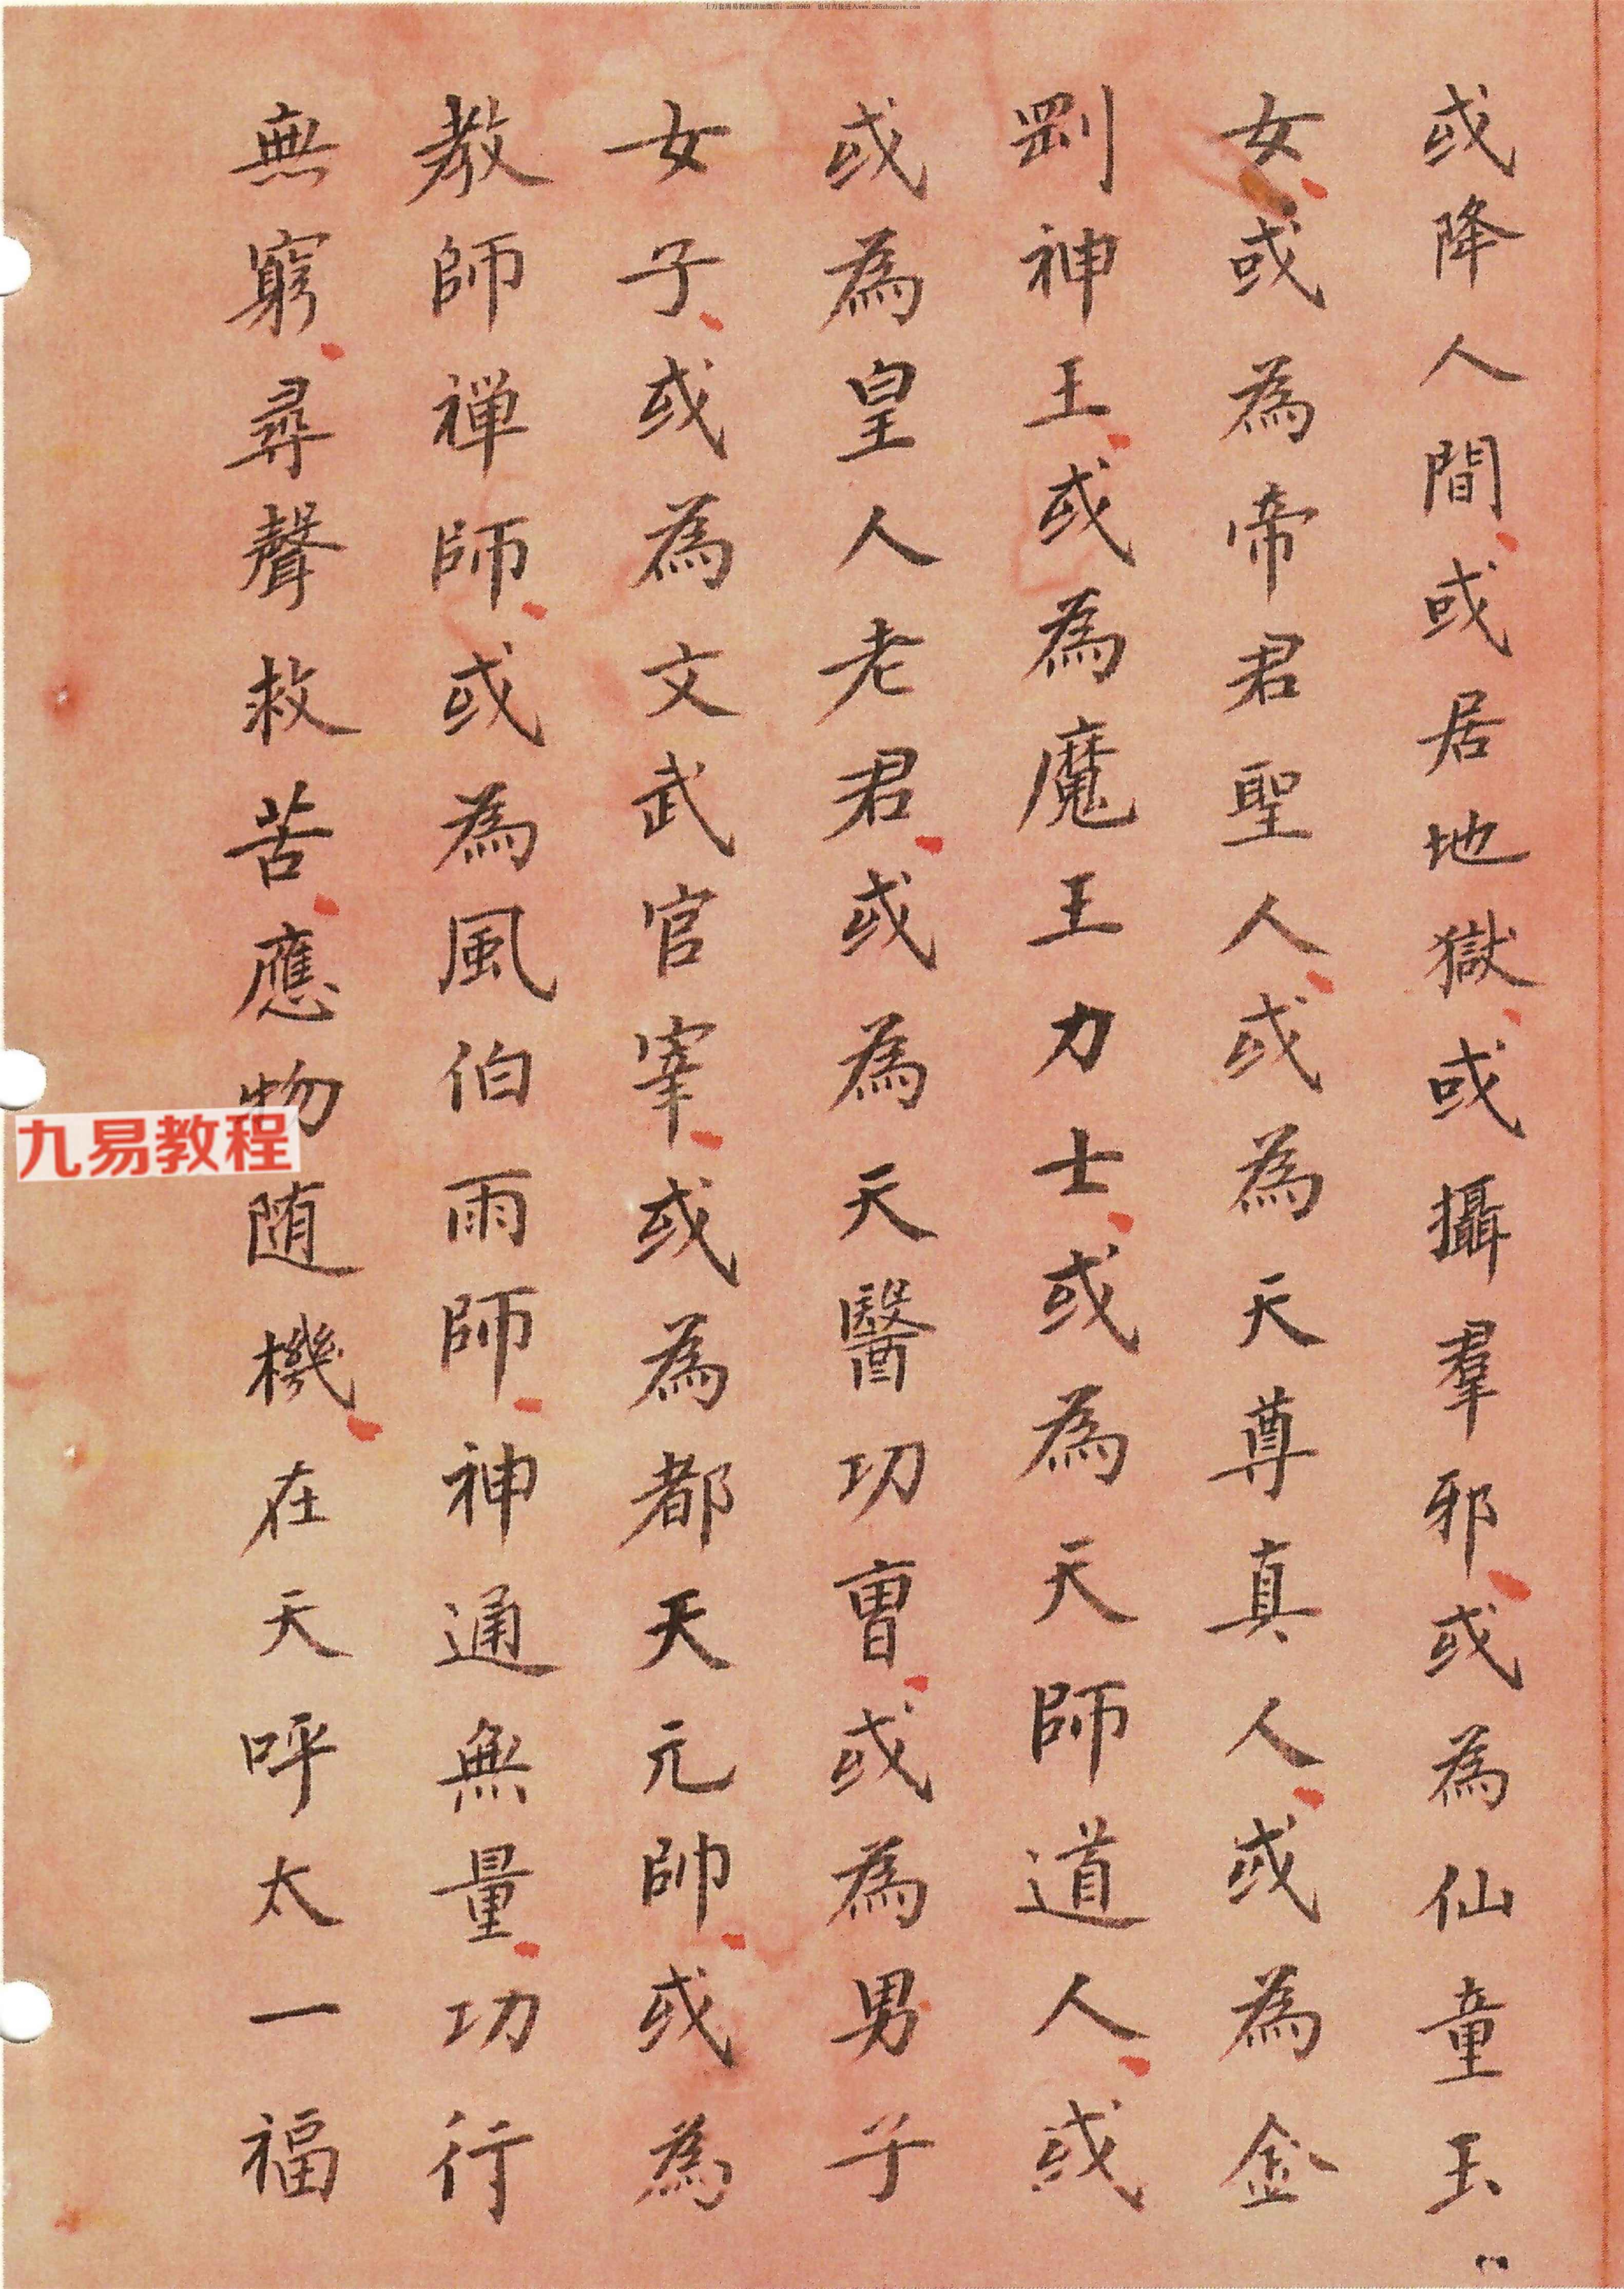 或降人間或居地獄或攝羣邪或為仙童玉
女或為帝君聖人或為天尊真人或為金
剛神王或為魔王力士或為天師道人或
或為皇人老君或為天醫功曹或為男子
女子或為文武官宰或為都天元帥或為
教師禅師或為風伯雨師神通無量功行
無窮尋聲救苦應物随機在天呼太一福
九易教程